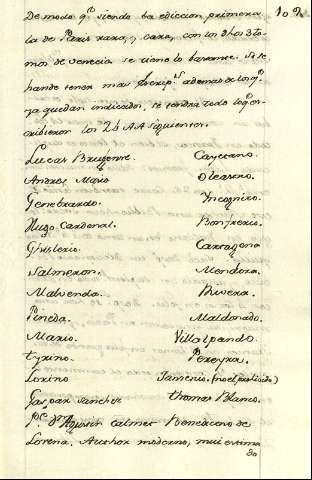 102
De modo q.e siendo la ediccion primera
la de Paris rara, y cara, con los dhos 3 to-
mos de Venecia se tiene lo bastante. Si se
han de tener mas Excrip.s ademas de los q.e
ya quedan indicados, se tendrá todo lo q.e es-
cribieron los 26 AA siguientes.
Lucas Brugense. Cayetano.
Andres Mario Oleastro.
Genebrardo. Yncognito.
Hugo Cardenal. Bonfrerio.
Guslerio. Cartagena
Salmeron. Mendoza.
Malvenda. Rivera.
Pineda. Maldonado.
Mario. Villalpando.
Tyrino. Pereyra.
Lorino Sameнio. (no el partido)
Gaspar Sanchez Thomas Blanco.
P.e Dn Agustin Calmet Benedicno de
Lorena. Author moderno, mui estima
do